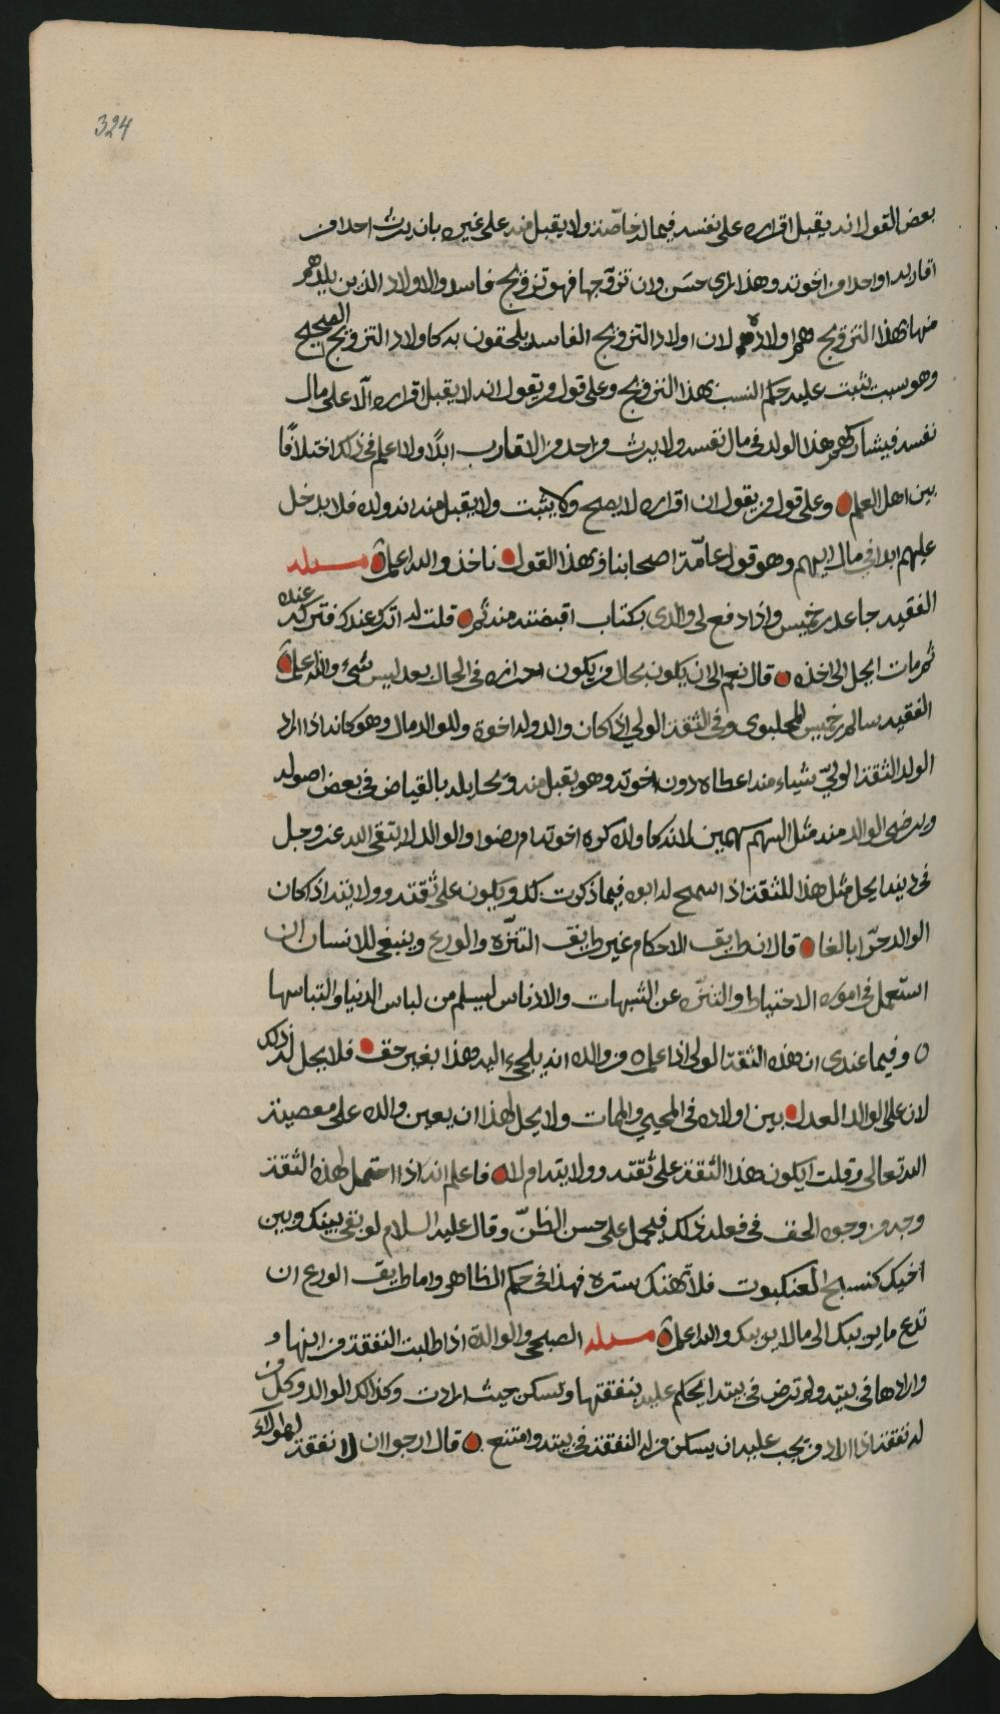 324
بعض القول انه يقبل اقراره على نفسه فيما له خاصة ولا يقبل منه على غيره بان يرث احدا من
اقاربه او احدا من اخوته وهذا راي حسن وان تزوجها فهو تزويج فاسد والاولاد الذين يلدهم
منها بهذا التزويج هم اولاده لان اولاد التزويج الفاسد يلحقون به كاولاد التزويج الصحيح
وهو سبب تثبت عليه حكم النسب بهذا التزويج وعلى قول من يقول انه لا يقبل اقراره الا على مال
نفسه فيشاركهم هذا الولد في مال نفسه ولا يرث من احد من الاقارب ابدًا ولا اعلم في ذلك اختلافًا
بين اهل العلم وعلى قول من يقول ان اقراره لا يصح ولا يثبت ولا يقبل منه انه ولده فلا يدخل
عليهم ابدا في مال ابيهم وهو قول عامّة اصحابنا وبهذا القول ناخذ والله اعلم مسله
الفقيه جاعد بن خميس واذا دفع لي والدي بكتاب اقبضته منه ثم قلت له اتركه عندك فتركه عنده
ثم مات ايحل لي اخذه قال نعم الا ان يكون بحال من يكون احرازه في الحال بعد ليس شيء والله اعلم
الفقيه سالم بن خميس المحليوي وفي الثقة الولي اذا كان والد وله اخوة وللوالد مال وهو كانه اذا اراد
الولد الثقة الوليّ شياء منه اعطاه دون اخوته وهو يقبل منه ويحابله بالقياض في بعض اصوله
ويرضى الوالد منه مثل السهم سهمين لانه كاولده كره اخوته ام رضوا والوالد لا يتقي الله عز وجل
في دينه ايحل مثل هذا للثقة اذا سمح له ابوه فيما ذكرت لك ويكون على ثقته وولايته اذا كان
الوالد حرّا بالغا قال ان طريق الاحكام غير طريق التنزّه والورع وينبغي للانسان ان
استعمل في اموره الاحتياط والتنزّه عن الشبهات والادناس ليسلم من لباس الدنيا والتباسها
ه وفيما عندي ان هذه الثقة الولي اذا علم من والده انه يلجيء اليه هذا بغير حق فلا يحل له ذلك
لان على الوالد العدل بين اولاده في المحيى والممات ولا يحل لهذا ان يعين والده على معصية
الله تعالى وقلت ايكون هذا الثقة على ثقته وولايته ام لا فاعلم انه اذا احتمل لهذه الثقة
وجه من وجوه الحق في فعله ذلك فيحمل على حسن الظنّ وقال عليه السلام لو بقي بينك وبين
اخيك كنسيج العنكبوت فلا تهتك ستره فهذا في حكم الظاهر واما طريق الورع ان
تدع ما يريبك الى ما لا يريبك والله اعلم مسله الصبحي والوالدة اذا طلبت النفقة من ابنها و
وارادها في بيته ولم ترض في بيته ايحكم عليه بنفقتها وتسكن حيث ارادت وكذلك الوالد وكل من
له نفقة اذا اراد من تجب عليه ان يسكن من له النفقة في بيته وامتنع قال ارجوا ان لا نفقة لهولاء